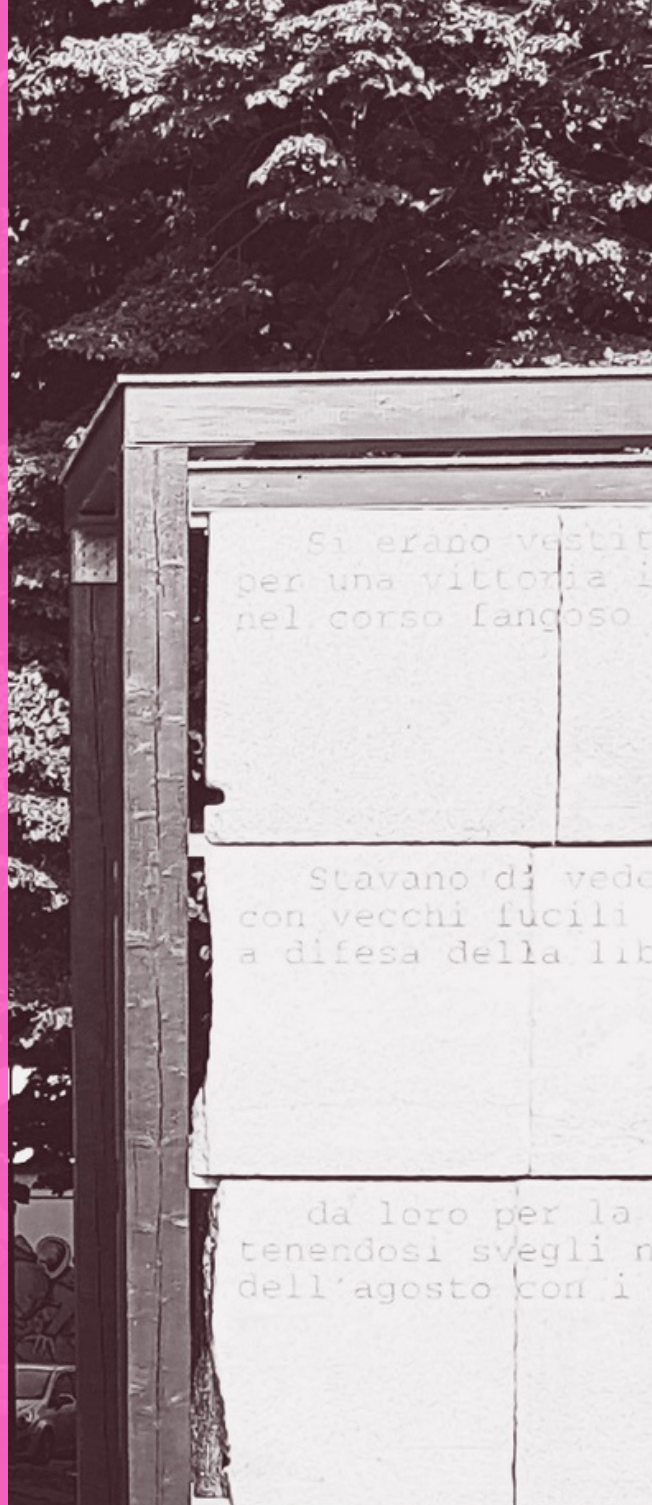 Si erano vestit
per una vittoria i
nel corso fangoso
Stavano di vede
con vecchi fucili
a difesa della lib
da loro per la
tenendosi svegli n
dell'agosto con i